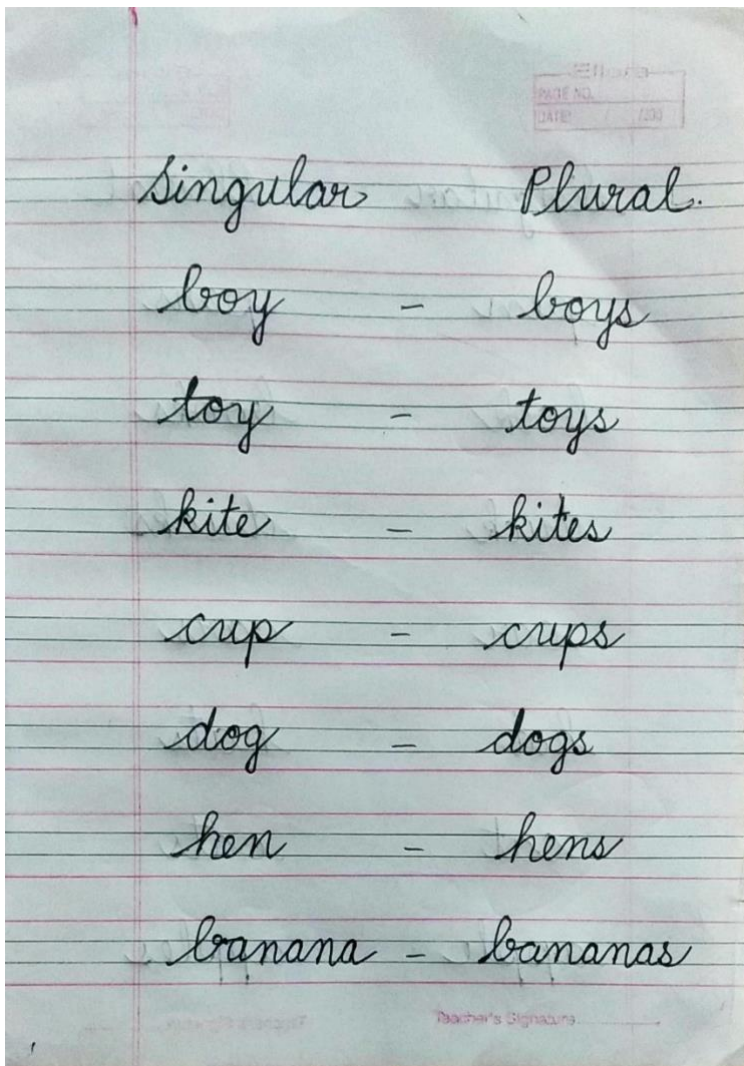 Ellora
PAGE NO.
DATE: / /200
Singular Plural.
boy - boys
toy - toys
kite - kites
cup - cups
dog - dogs
hen - hens
banana - bananas
Teacher's Signature